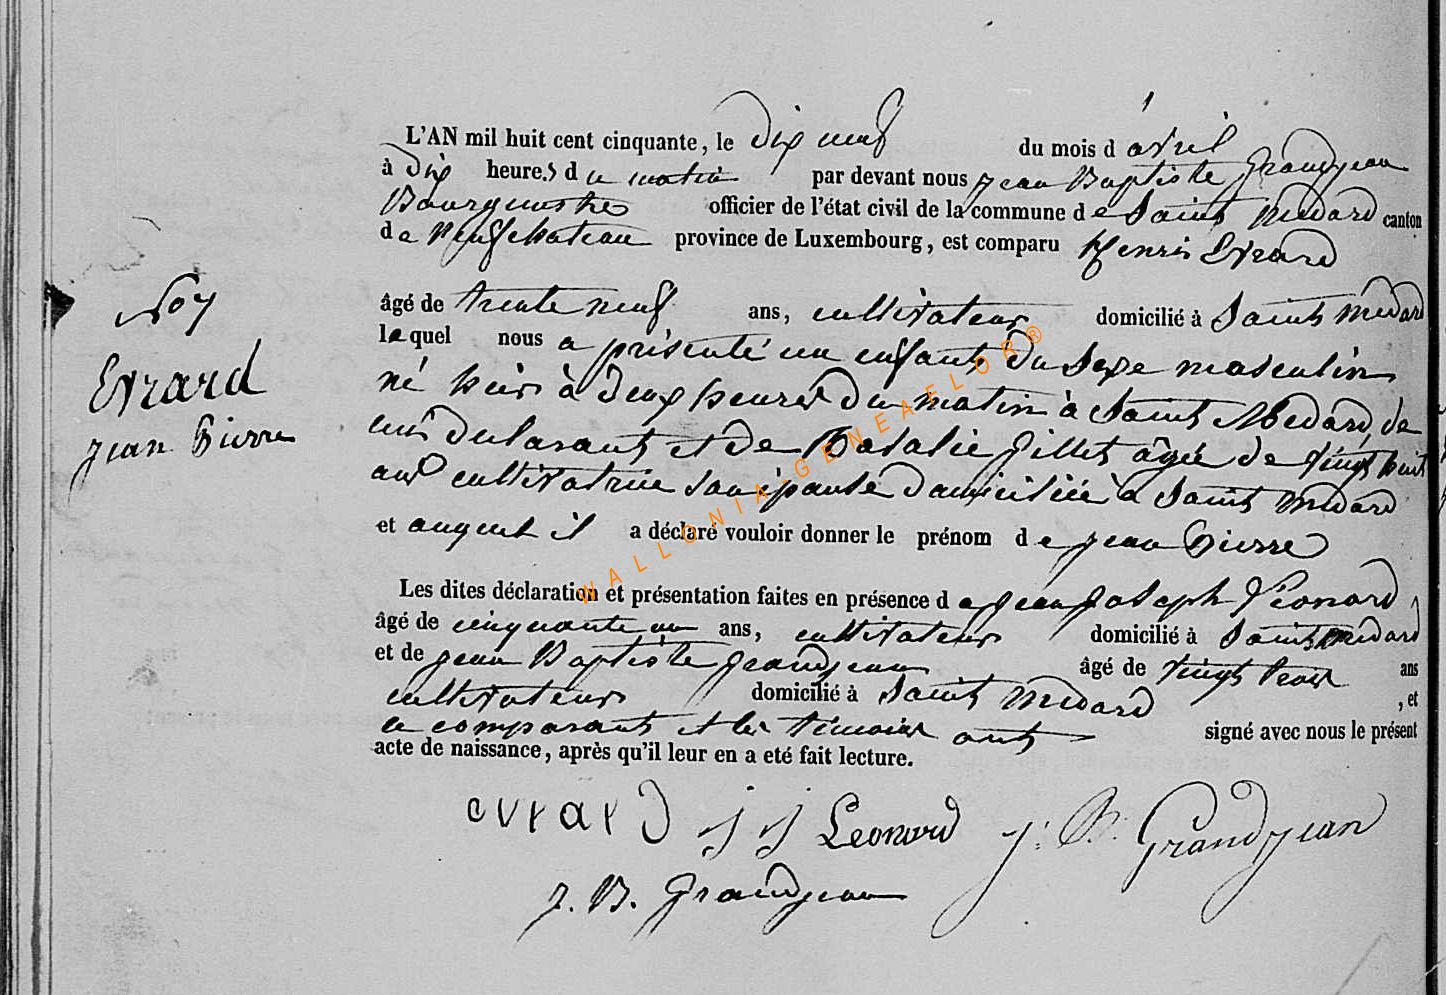 L'AN mil huit cent cinquante, le dix neuf du mois d'avril
à dix heures du matin par devant nous jean Baptiste Grandjean
Bourgmestre officier de l'état civil de la commune de Saint Medard canton
de Neufchateau province de Luxembourg, est comparu Henri Evrard
âgé de trente neuf ans, cultivateur domicilié à Saint Médard
lequel nous a présenté un enfant du sexe masculin
né hier à deux heures du matin à Saint Medard de
lui déclarant et de Natalie Gillet âgée de vingt huit
ans cultivatrice son épouse domiciliée à Saint Médard
et auquel il a déclaré vouloir donner le prénom de jean Pierre
Les dites déclaration et présentation faites en présence de jean joseph Léonard
âgé de cinquante un ans, cultivateur domicilié à Saint Médard
et de jean Baptiste grandjean âgé de vingt trois ans
cultivateur domicilié à Saint Médard , et
le comparant et les témoins ont signé avec nous le présent
acte de naissance, après qu'il leur en a eté fait lecture.
No 7
Evrard
jean Pierre
evrard j j Leonard j. B. Grandjean
j. B. Grandjean
WALLONIA-GENEAFLOR®